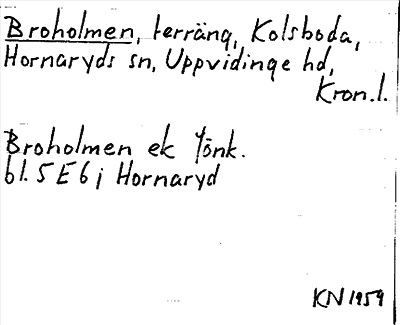 Broholmen, terräng, Kolsboda,
Hornaryds sn, Uppvidinge hd,
Kron.l.
Broholmen ek Jönk.
bl. 5 E 6 j Hornaryd
KN 1959